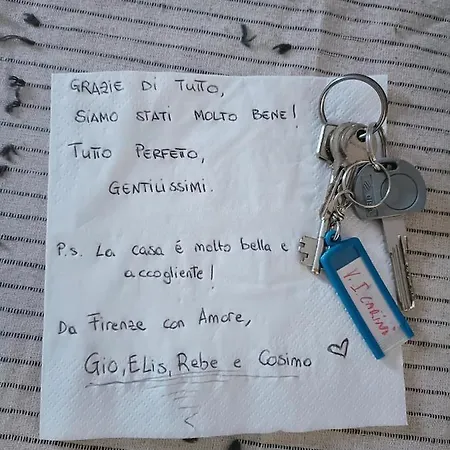 GRAZIE DI TUTTO,
SIAMO STATI MOLTO BENE!
TUTTO PERFETO,
GENTILISSIMI.
P.s. La casa é molto bella e
accogliente!
Da Firenze con Amore,
Gio, ELis, Rebe e Cosimo
V. I CARINI